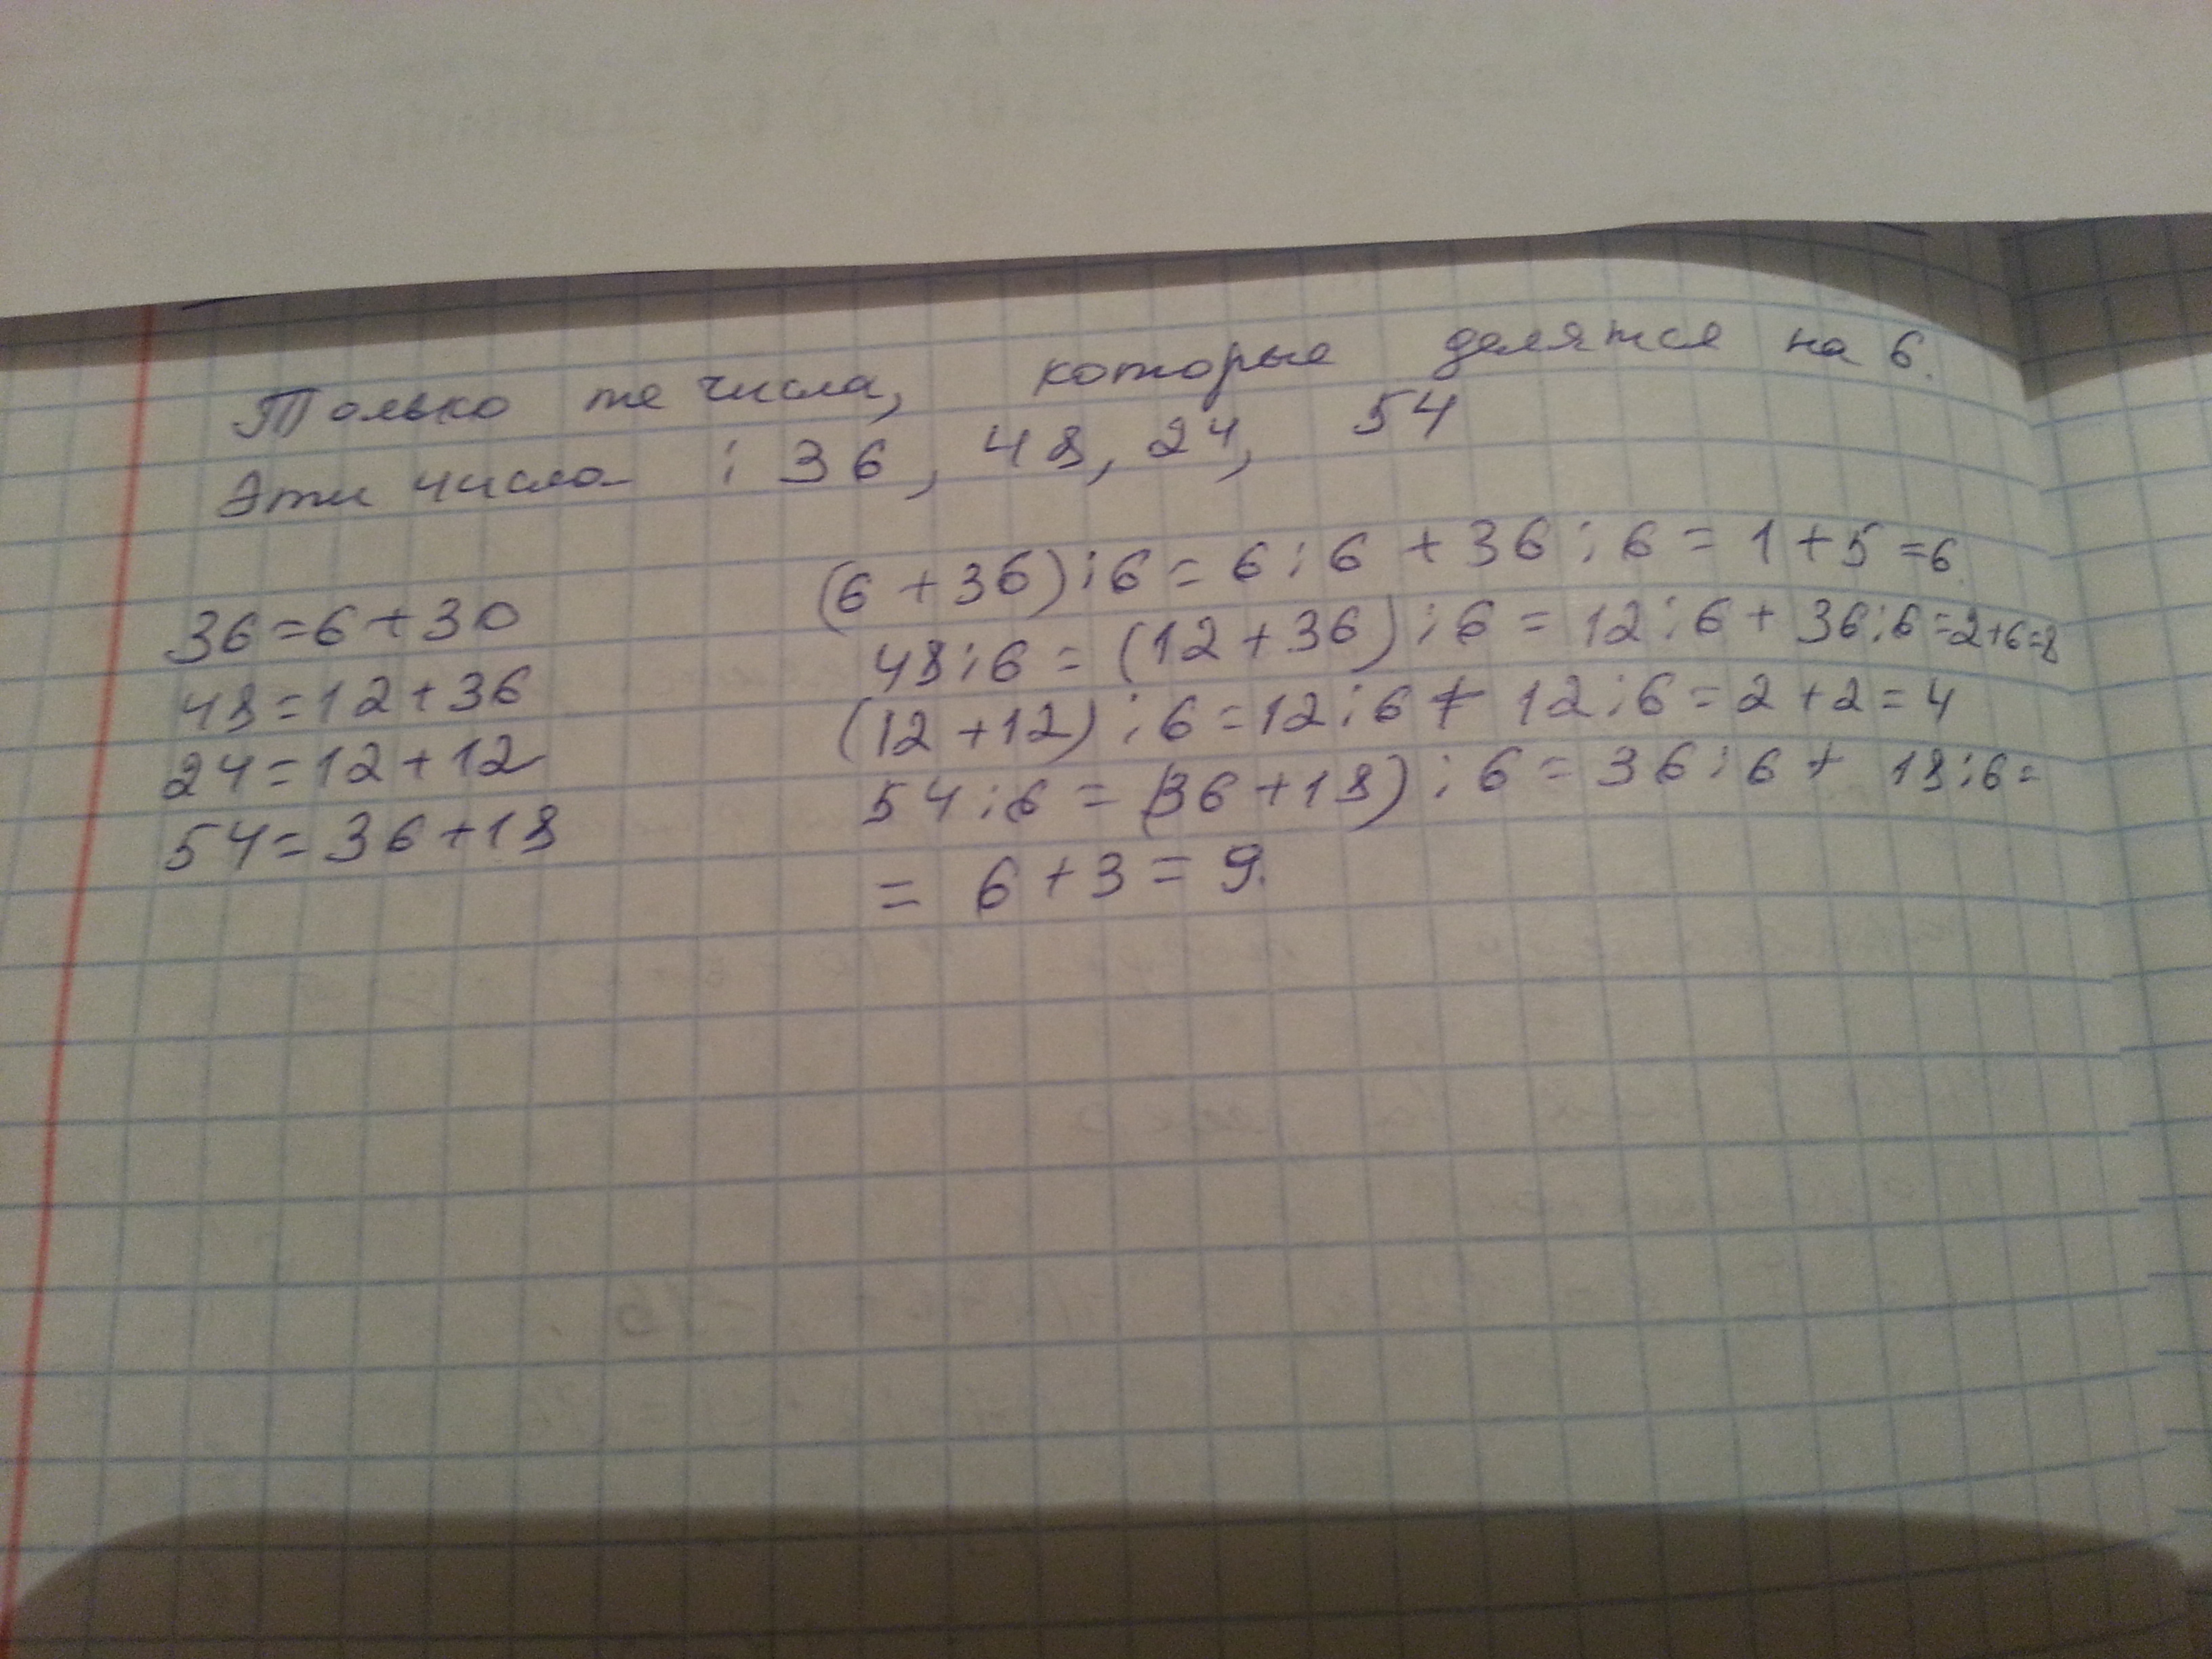 Только те числа, которые делятся на 6.
Эти числа : 36, 48, 24, 54
36=6+30
48=12+36
24=12+12
54=36+18
(6+36):6=6:6+36:6=1+5=6.
48:6=(12+36):6=12:6+36:6=2+6=8
(12+12):6=12:6+12:6=2+2=4
54:6=(36+18):6=36:6+18:6=
=6+3=9.